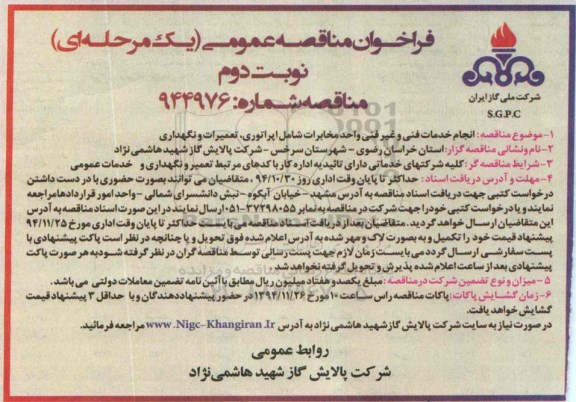 فراخوان مناقصه عمومی (یک مرحله‌ای)
نوبت دوم
مناقصه شماره: ۹۴۴۹۷۶
شرکت ملی گاز ایران
S.G.P.C
۱- موضوع مناقصه: انجام خدمات فنی و غیر فنی واحد مخابرات شامل اپراتوری، تعمیرات و نگهداری
۲- نام و نشانی مناقصه گزار: استان خراسان رضوی - شهرستان سرخس - شرکت پالایش گاز شهید هاشمی نژاد
۳- شرایط مناقصه گر: کلیه شرکتهای خدماتی دارای تائیدیه اداره کار با کدهای مرتبط تعمیر و نگهداری و خدمات عمومی
۴- مهلت و آدرس دریافت اسناد: حداکثر تا پایان وقت اداری روز ۹۴/۱۰/۳۰، متقاضیان می توانند بصورت حضوری با در دست داشتن
درخواست کتبی جهت دریافت اسناد مناقصه به آدرس مشهد - خیابان آبکوه - نبش دانشسرای شمالی - واحد امور قراردادها مراجعه
نمایند و یا درخواست کتبی خود را جهت شرکت در مناقصه به نمابر ۳۷۲۹۸۰۵۵-۰۵۱ ارسال نمایند در این صورت اسناد مناقصه به آدرس
این متقاضیان ارسال خواهد گردید. متقاضیان بعد از دریافت اسناد مناقصه می بایست حداکثر تا پایان وقت اداری مورخ ۹۴/۱۱/۲۵
پیشنهاد قیمت خود را تکمیل و به صورت لاک و مهر شده به آدرس اعلام شده فوق تحویل و یا چنانچه در نظر است پاکت پیشنهادی با
پست سفارشی ارسال گردد می بایست زمان لازم جهت پست رسانی توسط مناقصه گران در نظر گرفته شود به هر صورت پاکت
پیشنهادی بعد از ساعت اعلام شده پذیرش و تحویل گرفته نخواهد شد
۵- میزان و نوع تضمین شرکت در مناقصه: مبلغ یکصد و هفتاد میلیون ریال مطابق با آئین نامه تضمین معاملات دولتی می باشد.
۶- زمان گشایش پاکات: پاکات مناقصه راس ساعت ۱۰ مورخ ۱۳۹۴/۱۱/۲۶ در حضور پیشنهاد دهندگان و با حداقل ۳ پیشنهاد قیمت
گشایش خواهد یافت.
در صورت نیاز به سایت شرکت پالایش گاز شهید هاشمی نژاد به آدرس www.Nigc-Khangiran.Ir مراجعه فرمائید.
روابط عمومی
شرکت پالایش گاز شهید هاشمی نژاد